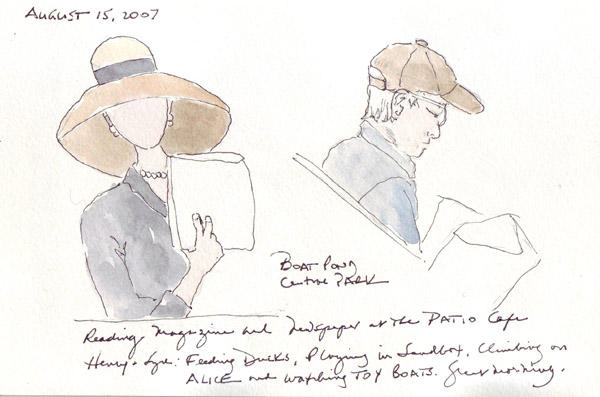 AUGUST 15, 2007
BOAT POND
Central PARK
Reading magazine and newspaper at the PATIO Cafe
Henry + : Feeding Ducks, Playing in Sandbox, Climbing on
ALICE and watching TOY BOATS. Great morning.